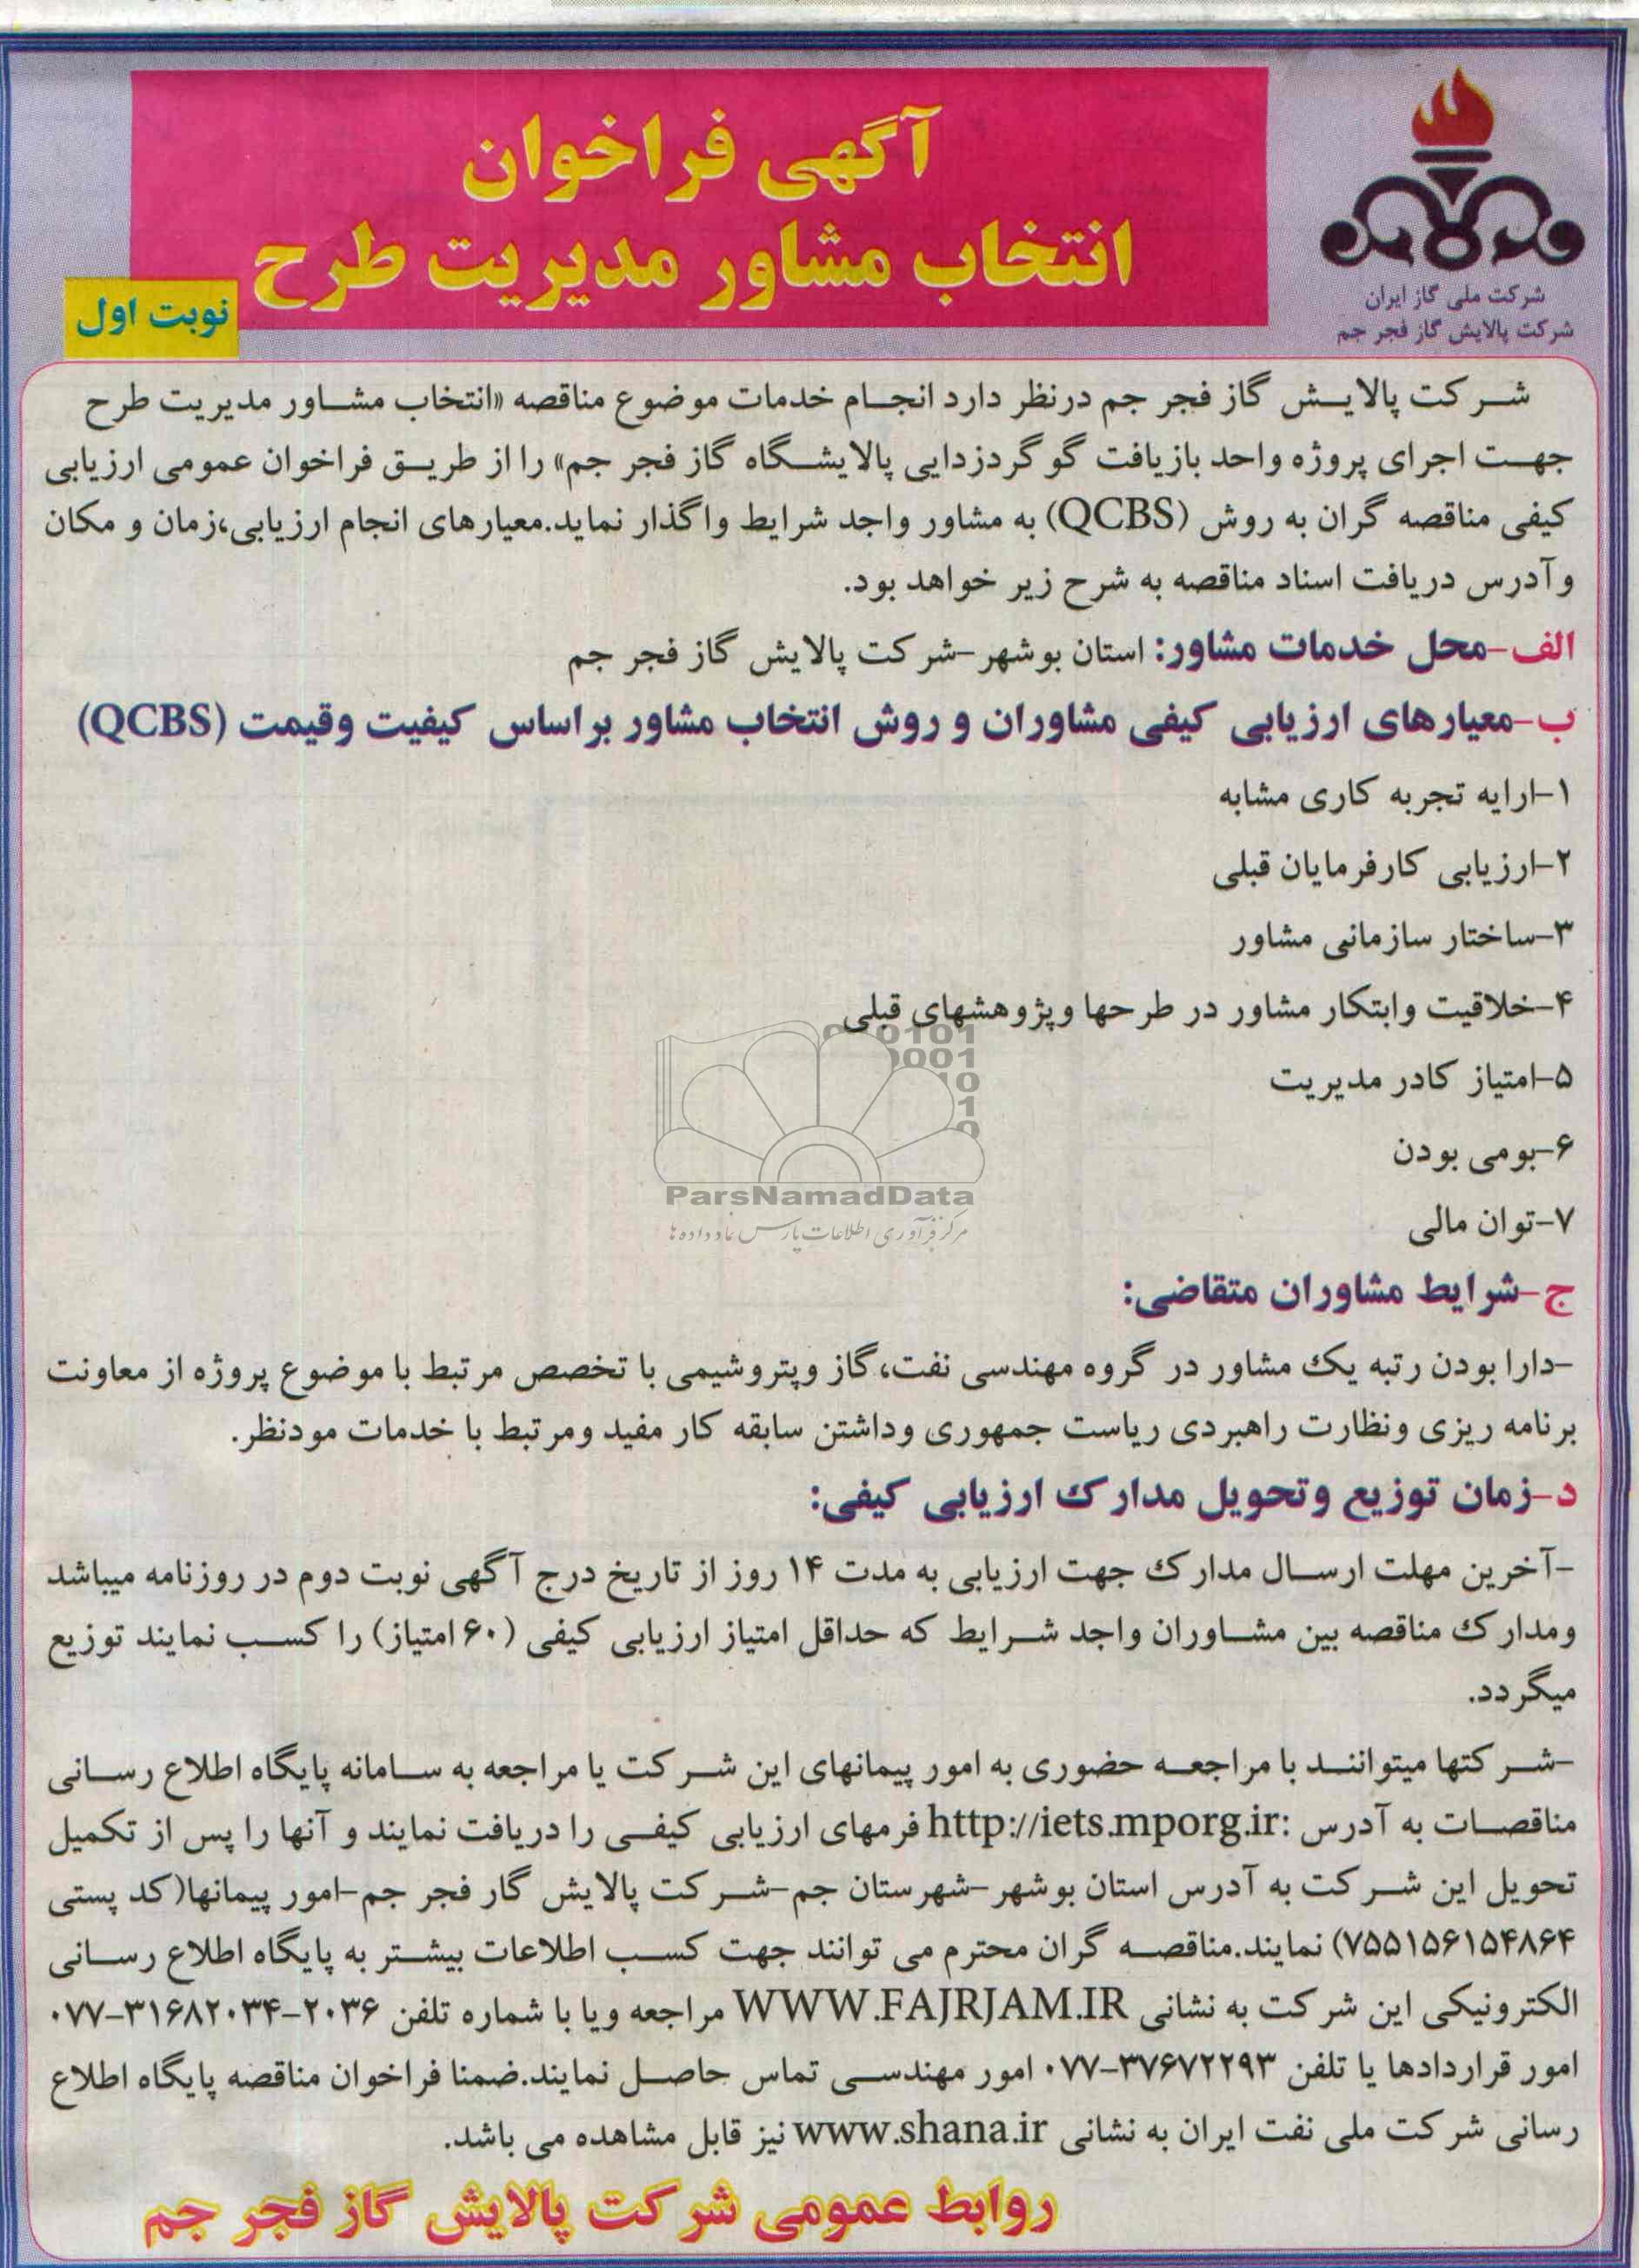 آگهی فراخوان
انتخاب مشاور مدیریت طرح
نوبت اول
شرکت ملی گاز ایران
شرکت پالایش گاز فجر جم
شرکت پالایش گاز فجر جم درنظر دارد انجام خدمات موضوع مناقصه «انتخاب مشاور مدیریت طرح
جهت اجرای پروژه واحد بازیافت گوگردزدایی پالایشگاه گاز فجر جم» را از طریق فراخوان عمومی ارزیابی
کیفی مناقصه گران به روش (QCBS) به مشاور واجد شرایط واگذار نماید.معیارهای انجام ارزیابی،زمان و مکان
وآدرس دریافت اسناد مناقصه به شرح زیر خواهد بود.
الف-محل خدمات مشاور: استان بوشهر-شرکت پالایش گاز فجر جم
ب-معیارهای ارزیابی کیفی مشاوران و روش انتخاب مشاور براساس کیفیت وقیمت (QCBS)
۱-ارایه تجربه کاری مشابه
۲-ارزیابی کارفرمایان قبلی
۳-ساختار سازمانی مشاور
۴-خلاقیت وابتکار مشاور در طرحها وپژوهشهای قبلی
۵-امتیاز کادر مدیریت
۶-بومی بودن
۷-توان مالی
ParsNamadData
مرکز فرآوری اطلاعات پارس نماد داده ها
ج-شرایط مشاوران متقاضی:
-دارا بودن رتبه یک مشاور در گروه مهندسی نفت،گاز وپتروشیمی با تخصص مرتبط با موضوع پروژه از معاونت
برنامه ریزی ونظارت راهبردی ریاست جمهوری وداشتن سابقه کار مفید ومرتبط با خدمات مودنظر.
د-زمان توزیع وتحویل مدارک ارزیابی کیفی:
-آخرین مهلت ارسال مدارک جهت ارزیابی به مدت ۱۴ روز از تاریخ درج آگهی نوبت دوم در روزنامه میباشد
ومدارک مناقصه بین مشاوران واجد شرایط که حداقل امتیاز ارزیابی کیفی (۶۰امتیاز) را کسب نمایند توزیع
میگردد.
-شرکتها میتوانند با مراجعه حضوری به امور پیمانهای این شرکت یا مراجعه به سامانه پایگاه اطلاع رسانی
مناقصات به آدرس :http://iets.mporg.ir فرمهای ارزیابی کیفی را دریافت نمایند و آنها را پس از تکمیل
تحویل این شرکت به آدرس استان بوشهر-شهرستان جم-شرکت پالایش گار فجر جم-امور پیمانها(کد پستی
۷۵۵۱۵۶۱۵۴۸۶۴) نمایند.مناقصه گران محترم می توانند جهت کسب اطلاعات بیشتر به پایگاه اطلاع رسانی
الکترونیکی این شرکت به نشانی WWW.FAJRJAM.IR مراجعه ویا با شماره تلفن ۲۰۳۶-۳۱۶۸۲۰۳۴-۰۷۷
امور قراردادها یا تلفن ۳۷۶۷۲۲۹۳-۰۷۷ امور مهندسی تماس حاصل نمایند.ضمنا فراخوان مناقصه پایگاه اطلاع
رسانی شرکت ملی نفت ایران به نشانی www.shana.ir نیز قابل مشاهده می باشد.
روابط عمومی شرکت پالایش گاز فجر جم